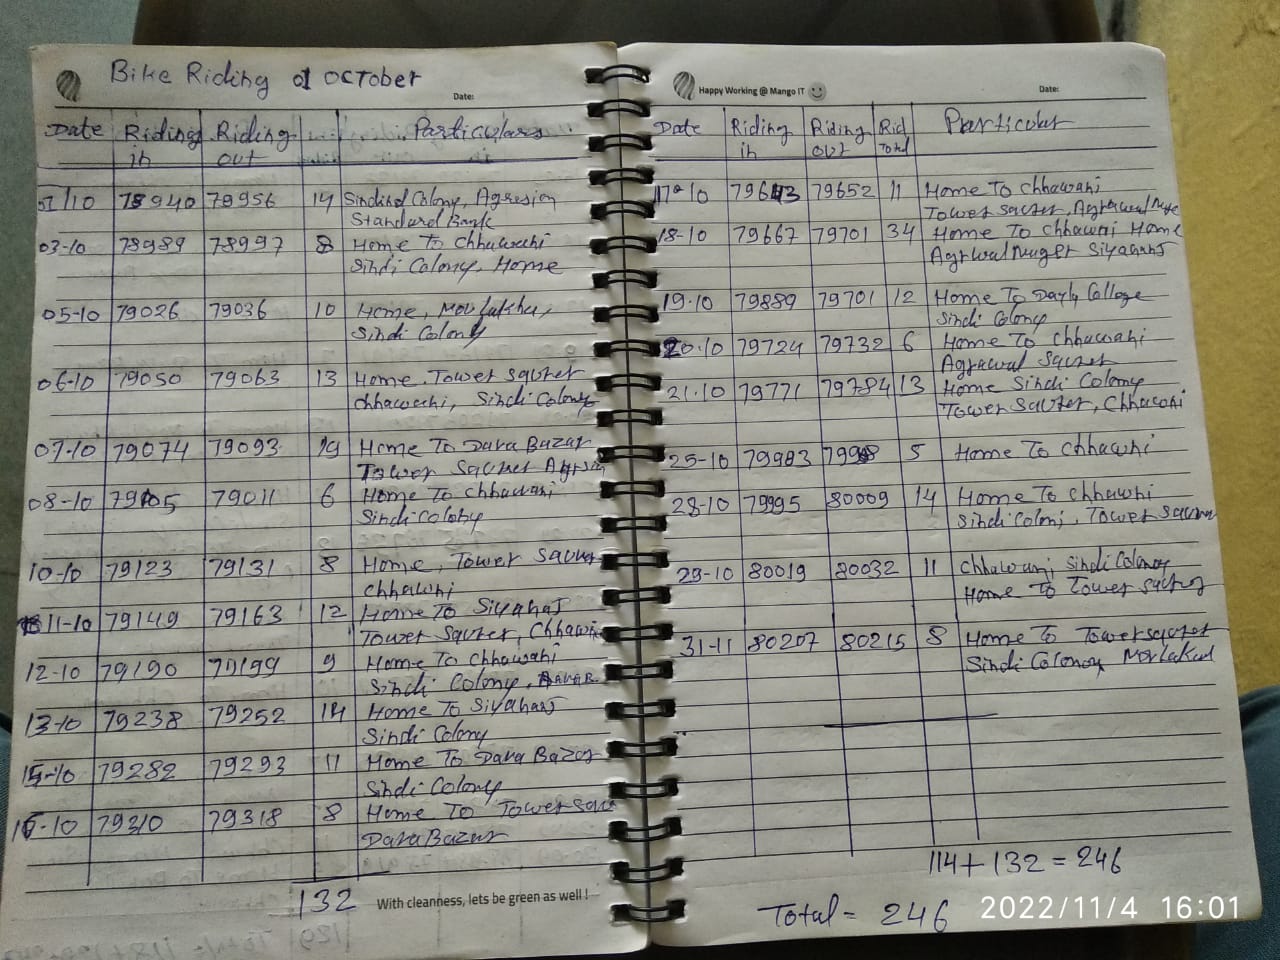 Bike Riding of OCTOBER
Date:
Date Riding in Riding out Particulars
01/10 78940 78956 14 Sindhi Colony, Agresion
Standard Bank
03-10 78989 78997 8 Home To Chhawchi
Sindi Colony, Home
05-10 79026 79036 10 Home, Movlakha,
Sindi Colony
06-10 79050 79063 13 Home Tower Squrer
Chhawchi, Sindi Colony
07-10 79074 79093 19 Home To Dava Bazar
Tower Squrer
08-10 79105 79011 6 Home To Chhawani
Sindi Colony
10-10 79123 79131 8 Home, Tower
Chhawni
11-10 79149 79163 12 Home To Siyahaj
Tower Squrer, Chhawni
12-10 79190 79199 9 Home To Chhawahi
Sindi Colony,
13-10 79238 79252 14 Home To Siyahaj
Sindi Colony
15-10 79282 79293 11 Home To Dava Bazar
Sindi Colony
16-10 79310 79318 8 Home To Tower
Dava Bazar
132
With cleanness, lets be green as well !
Happy Working @ Mango IT
Date:
Date Riding in Riding out Rid Total Particular
17-10 79643 79652 11 Home To Chhawani
Tower Squrer, Agrawal
18-10 79667 79701 34 Home To Chhawni Home
Agrwal Nuger Siyaganj
19.10 79889 79701 12 Home To Dayly College
Sindi Colony
20.10 79724 79732 6 Home To Chhawahi
Agrawal Squrer
21.10 79771 79784 13 Home Sindi Colony
Tower Squrer, Chhawani
25-10 79983 79988 5 Home To Chhawhi
28-10 79995 80009 14 Home To Chhawhi
Sindi Coloni, Tower
29-10 80019 80032 11 Chhawani Sindi Colony
Home To Tower
31-11 80207 80215 8 Home To Tower squrer
Sindi Colony Movlakha
114 + 132 = 246
Total = 246
2022/11/4 16:01